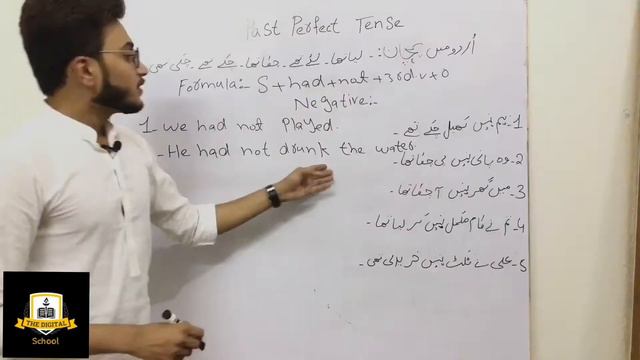 Past Perfect Tense
اُردو میں پہچان:۔ لیا تھا۔ لیے تھے۔ چکا تھا۔ چکے تھے۔ چکی تھی
Formula:- S+had+not+3rd.v+O
Negative:-
1 We had not Played.
1۔ ہم نہیں کھیل چکے تھے۔
- He had not drunk the water.
2۔ وہ پانی نہیں پی چکا تھا۔
3۔ میں گھر نہیں آ چکا تھا۔
4۔ تم نے کام مکمل نہیں کر لیا تھا۔
5۔ علی نے فلیٹ نہیں خرید لی تھی۔
THE DIGITAL
School